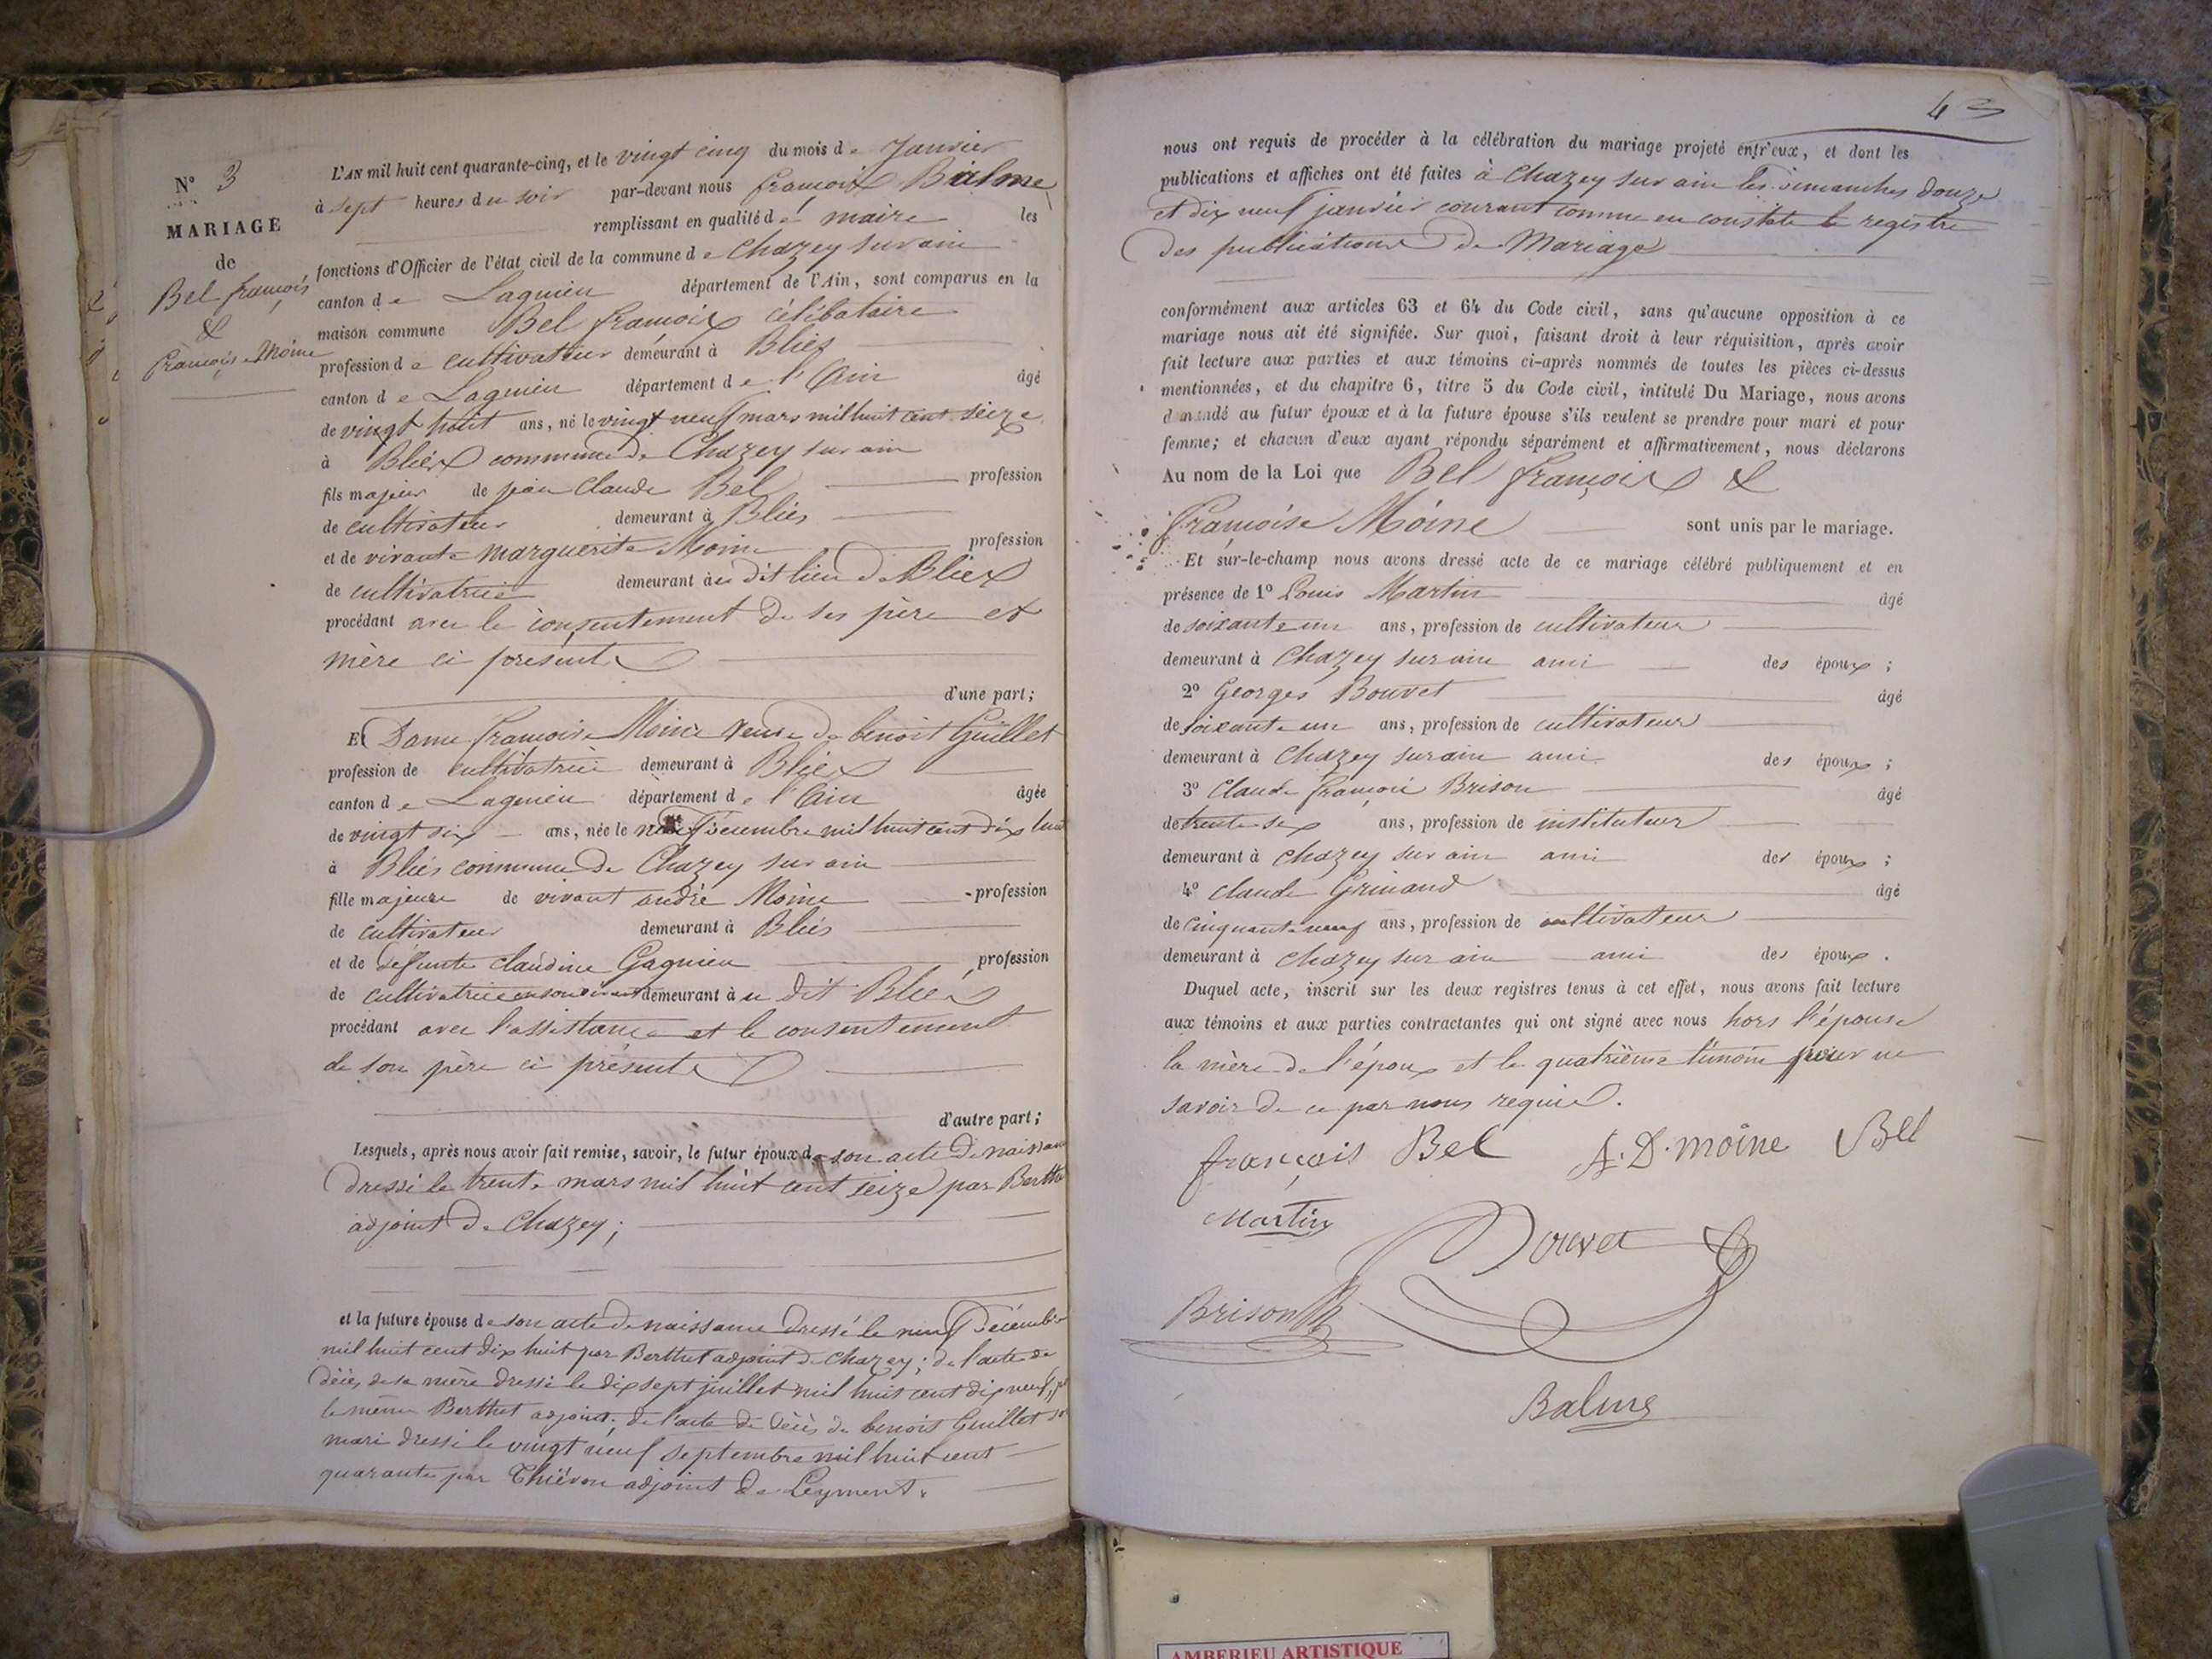 N° 3
MARIAGE
de
Bel françois
&
françoise Moine
L'AN mil huit cent quarante-cinq, et le vingt cinq du mois de Janvier
à sept heures du soir par-devant nous françois Balme
remplissant en qualité de maire les
fonctions d'Officier de l'état civil de la commune de Chazey sur ain
canton de Lagnieu département de l'Ain, sont comparus en la
maison commune Bel françois célibataire
profession de cultivateur demeurant à Bliés
canton de Lagnieu département de l'Ain âgé
de vingt huit ans, né le vingt neuf mars mil huit cent seize
à Bliés commune de Chazey sur ain
fils majeur de jean Claude Bel profession
de cultivateur demeurant à Bliés
et de vivante marguerite Moine profession
de cultivatrice demeurant au dit lieu de Bliés
procédant avec le consentement de ses père et
mère ci présents
d'une part;
Et Dame françoise Moine veuve de benoit Guillet
profession de cultivatrice demeurant à Bliés
canton de Lagnieu département de l'Ain âgée
de vingt six ans, née le neuf Décembre mil huit cent dix huit
à Bliés commune de Chazey sur ain
fille majeure de vivant andré Moine profession
de cultivateur demeurant à Bliés
et de défunte claudine Gagnieu profession
de cultivatrice en son vivant demeurant au dit Bliés
procédant avec l'assistance et le consentement
de son père ci présent
d'autre part;
Lesquels, après nous avoir fait remise, savoir, le futur époux de son acte de naissance
dressé le trente mars mil huit cent seize par Berthet
adjoint de Chazey;
et la future épouse de son acte de naissance dressé le neuf Décembre
mil huit cent dix huit par Berthet adjoint de Chazey; de l'acte de
décès de sa mère dressé le dix sept juillet mil huit cent dix neuf, par
le même Berthet adjoint; de l'acte de décès de benoit Guillet
mari dressé le vingt neuf septembre mil huit cent
quarante par Thiévon adjoint de Leyment.
43
nous ont requis de procéder à la célébration du mariage projeté entr'eux, et dont les
publications et affiches ont été faites à Chazey sur ain les dimanches douze
et dix neuf janvier courant comme en constate le registre
des publications de Mariage
conformément aux articles 63 et 64 du Code civil, sans qu'aucune opposition à ce
mariage nous ait été signifiée. Sur quoi, faisant droit à leur réquisition, après avoir
fait lecture aux parties et aux témoins ci-après nommés de toutes les pièces ci-dessus
mentionnées, et du chapitre 6, titre 5 du Code civil, intitulé Du Mariage, nous avons
demandé au futur époux et à la future épouse s'ils veulent se prendre pour mari et pour
femme; et chacun d'eux ayant répondu séparément et affirmativement, nous déclarons
Au nom de la Loi que Bel françois &
françoise Moine sont unis par le mariage.
Et sur-le-champ nous avons dressé acte de ce mariage célébré publiquement et en
présence de 1° Louis Martin âgé
de soixante un ans, profession de cultivateur
demeurant à Chazey sur ain ami des époux;
2° Georges Bouvet âgé
de soixante un ans, profession de cultivateur
demeurant à Chazey sur ain ami des époux;
3° Claude françois Brison âgé
de trente six ans, profession de instituteur
demeurant à Chazey sur ain ami des époux;
4° claude Grinand âgé
de cinquante neuf ans, profession de cultivateur
demeurant à Chazey sur ain ami des époux.
Duquel acte, inscrit sur les deux registres tenus à cet effet, nous avons fait lecture
aux témoins et aux parties contractantes qui ont signé avec nous hors l'épouse
la mère de l'époux et le quatrième témoin pour ne
savoir de ce par nous requis.
françois Bel A. D. moine Bel
Martin
Bouvet
Brison
Balme
AMBERIEU ARTISTIQUE